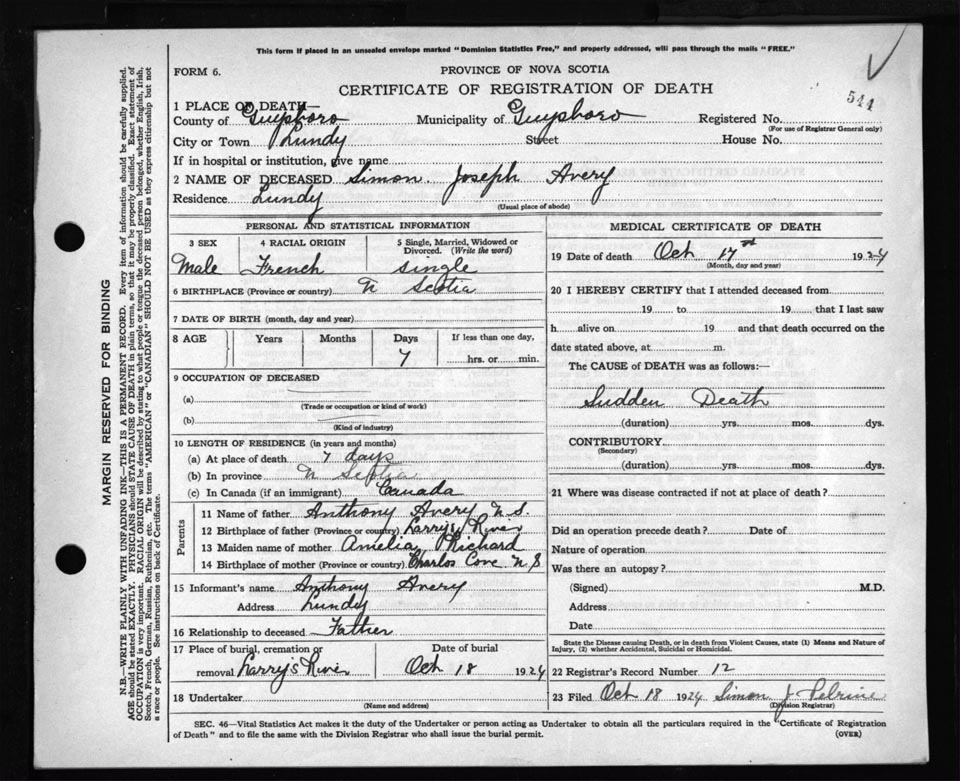 This form if placed in an unsealed envelope marked "Dominion Statistics Free," and properly addressed, will pass through the mails "FREE."
FORM 6.
PROVINCE OF NOVA SCOTIA
CERTIFICATE OF REGISTRATION OF DEATH
544
1 PLACE OF DEATH—
County of Guysboro Municipality of Guysboro Registered No.
(For use of Registrar General only)
City or Town Lundy Street House No.
If in hospital or institution, give name
2 NAME OF DECEASED Simon Joseph Avery
Residence Lundy
(Usual place of abode)
PERSONAL AND STATISTICAL INFORMATION
3 SEX 4 RACIAL ORIGIN 5 Single, Married, Widowed or Divorced. (Write the word)
Male French single
6 BIRTHPLACE (Province or country) N Scotia
7 DATE OF BIRTH (month, day and year)
8 AGE Years Months Days If less than one day,
7 hrs. or min.
9 OCCUPATION OF DECEASED
(a)
(Trade or occupation or kind of work)
(b)
(Kind of industry)
10 LENGTH OF RESIDENCE (in years and months)
(a) At place of death 7 days
(b) In province N Scotia
(c) In Canada (if an immigrant) Canada
Parents
11 Name of father Anthony Avery N S.
12 Birthplace of father (Province or country) Larrys River
13 Maiden name of mother Amelia Richard
14 Birthplace of mother (Province or country) Charlos Cove N. S
15 Informant's name Anthony Avery
Address Lundy
16 Relationship to deceased Father
17 Place of burial, cremation or removal Larry's River Date of burial Oct 18 1924
18 Undertaker
(Name and address)
MEDICAL CERTIFICATE OF DEATH
19 Date of death Oct 17 1924
(Month, day and year)
20 I HEREBY CERTIFY that I attended deceased from
19 to 19 that I last saw
h alive on 19 and that death occurred on the
date stated above, at m.
The CAUSE of DEATH was as follows:—
Sudden Death
(duration) yrs. mos. dys.
CONTRIBUTORY
(Secondary)
(duration) yrs. mos. dys.
21 Where was disease contracted if not at place of death?
Did an operation precede death? Date of
Nature of operation
Was there an autopsy?
(Signed) M.D.
Address
Date
State the Disease causing Death, or in death from Violent Causes, state (1) Means and Nature of
Injury, (2) whether Accidental, Suicidal or Homicidal.
22 Registrar's Record Number 12
23 Filed Oct 18 1924 Simon J Pelrine
(Division Registrar)
SEC. 46—Vital Statistics Act makes it the duty of the Undertaker or person acting as Undertaker to obtain all the particulars required in the "Certificate of Registration
of Death" and to file the same with the Division Registrar who shall issue the burial permit.
(OVER)
MARGIN RESERVED FOR BINDING
N.B.—WRITE PLAINLY WITH UNFADING INK—THIS IS A PERMANENT RECORD. Every item of information should be carefully supplied.
AGE should be stated EXACTLY. PHYSICIANS should STATE CAUSE OF DEATH in plain terms, so that it may be properly classified. Exact statement of
OCCUPATION is very important. RACIAL ORIGIN will be described by stating to what people or tongue the deceased person belonged, whether English, Irish,
Scotch, French, German, Russian, Ruthenian, etc. The terms "AMERICAN" or "CANADIAN" SHOULD NOT BE USED as they express citizenship but not
a race or people. See instructions on back of Certificate.